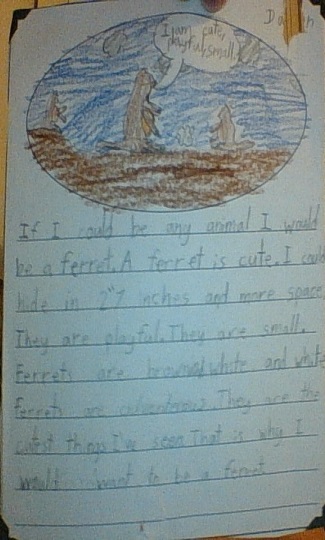 I am cute,
playful, small.
If I could be any animal I would
be a ferret. A ferret is cute. I could
hide in 2"7 inches and more space
They are playful. They are small.
Ferrets are brown, white, and white
ferrets are They are the
cutest things I've seen That is why I
would want to be a ferret